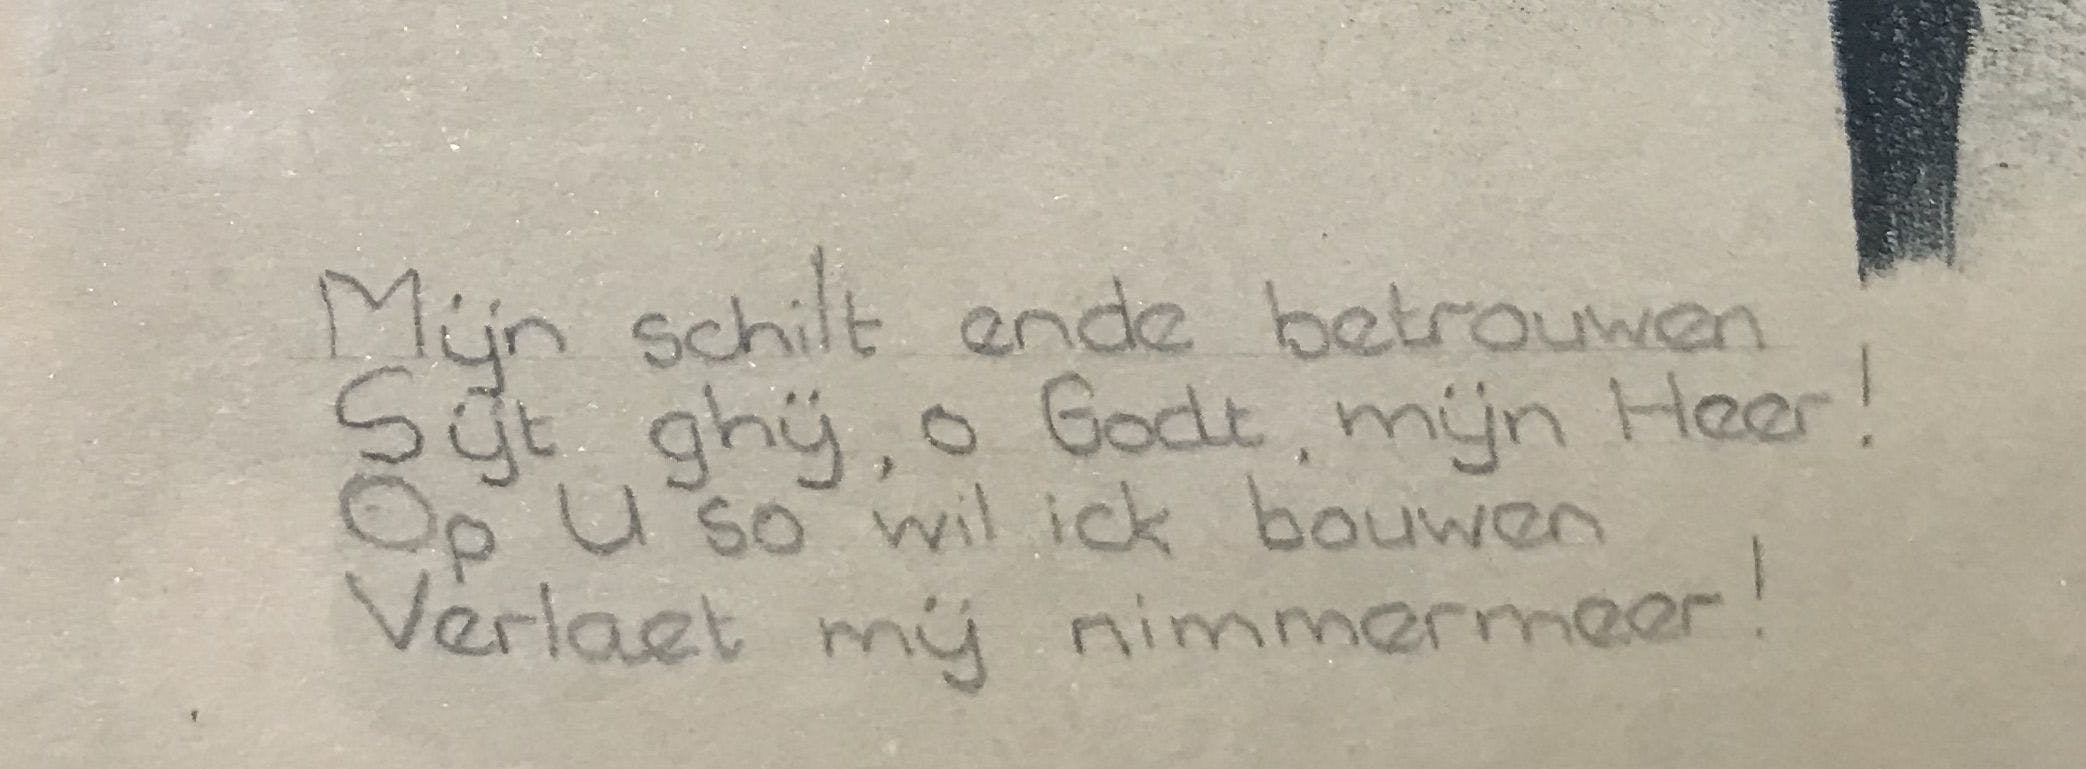 Mijn schilt ende betrouwen
Sijt ghij, o Godt, mijn Heer!
Op U so wil ick bouwen
Verlaet mij nimmermeer!